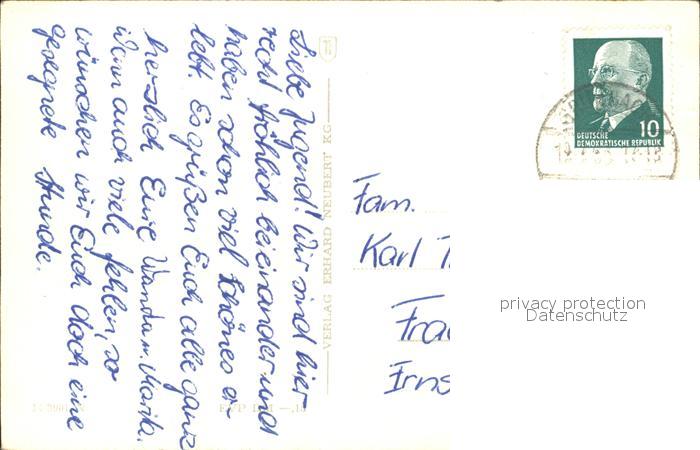 Liebe Jugend! Wir sind hier
recht fröhlich beieinander und
haben schon viel schönes er-
lebt. Es grüßen Euch alle ganz
herzlich Eure Wanda u. Marita.
Wenn auch viele fehlen, so
wünschen wir Euch doch eine
gesegnete Stunde.
VERLAG ERHARD NEUBERT KG
Fam.
Karl
DEUTSCHE
DEMOKRATISCHE REPUBLIK
10
privacy protection
Datenschutz